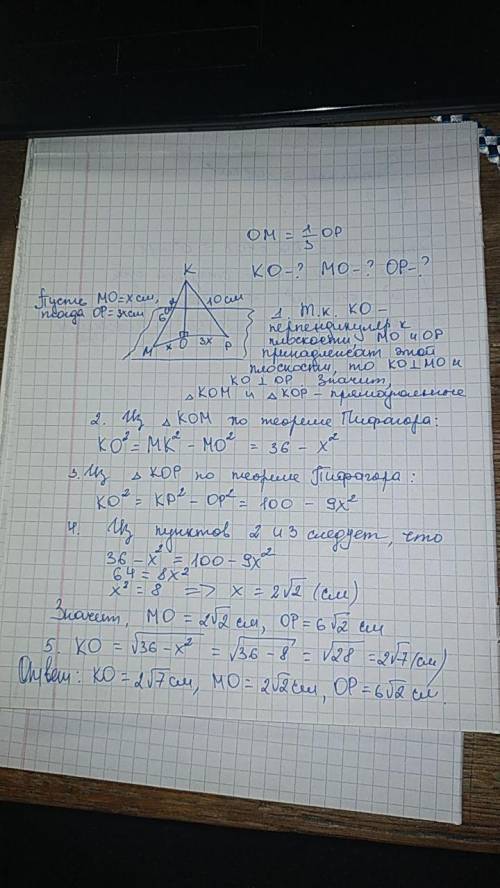 OM = 1/3 OP
KO-? MO-? OP-?
Пусть MO = x см,
тогда OP = 3x см
K
6 10 см
M x O 3x P
1. Т.к. KO -
перпендикуляр к
плоскости MO и OP
принадлежат этой
плоскости, то KO⊥MO и
KO ⊥ OP. Значит,
△KOM и △KOP - прямоугольные
2. Из △KOM по теореме Пифагора:
KO² = MK² - MO² = 36 - x²
3. Из △KOP по теореме Пифагора:
KO² = KP² - OP² = 100 - 9x²
4. Из пунктов 2 и 3 следует, что
36 - x² = 100 - 9x²
64 = 8x²
x² = 8 => x = 2√2 (см)
Значит, MO = 2√2 см, OP = 6√2 см
5. KO = √36 - x² = √36 - 8 = √28 = 2√7 (см)
Ответ: KO = 2√7 см, MO = 2√2 см, OP = 6√2 см.